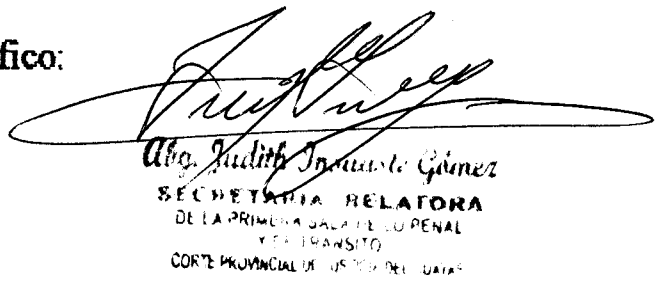 fico:
Abg. Judith Gómez
SECRETARIA RELATORA
DE LA PRIMERA SALA DE LO PENAL
Y DE TRANSITO
CORTE PROVINCIAL DE JUSTICIA DEL GUAYAS